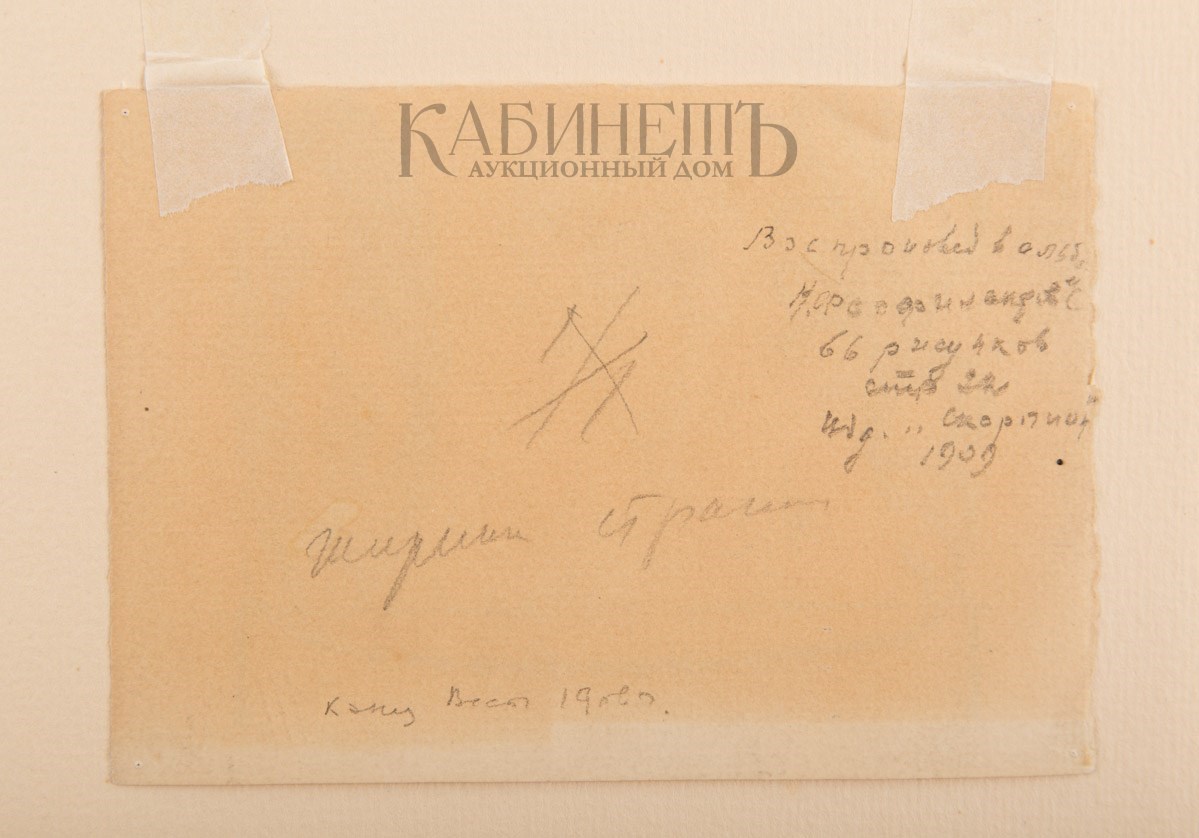 КАБИНЕТЪ
АУКЦИОННЫЙ ДОМ
Воспроизвед в альб.
Н. Феофилактов
66 рисунков
стр 22
Изд. „Скорпион"
1909
ширина стран
Весы